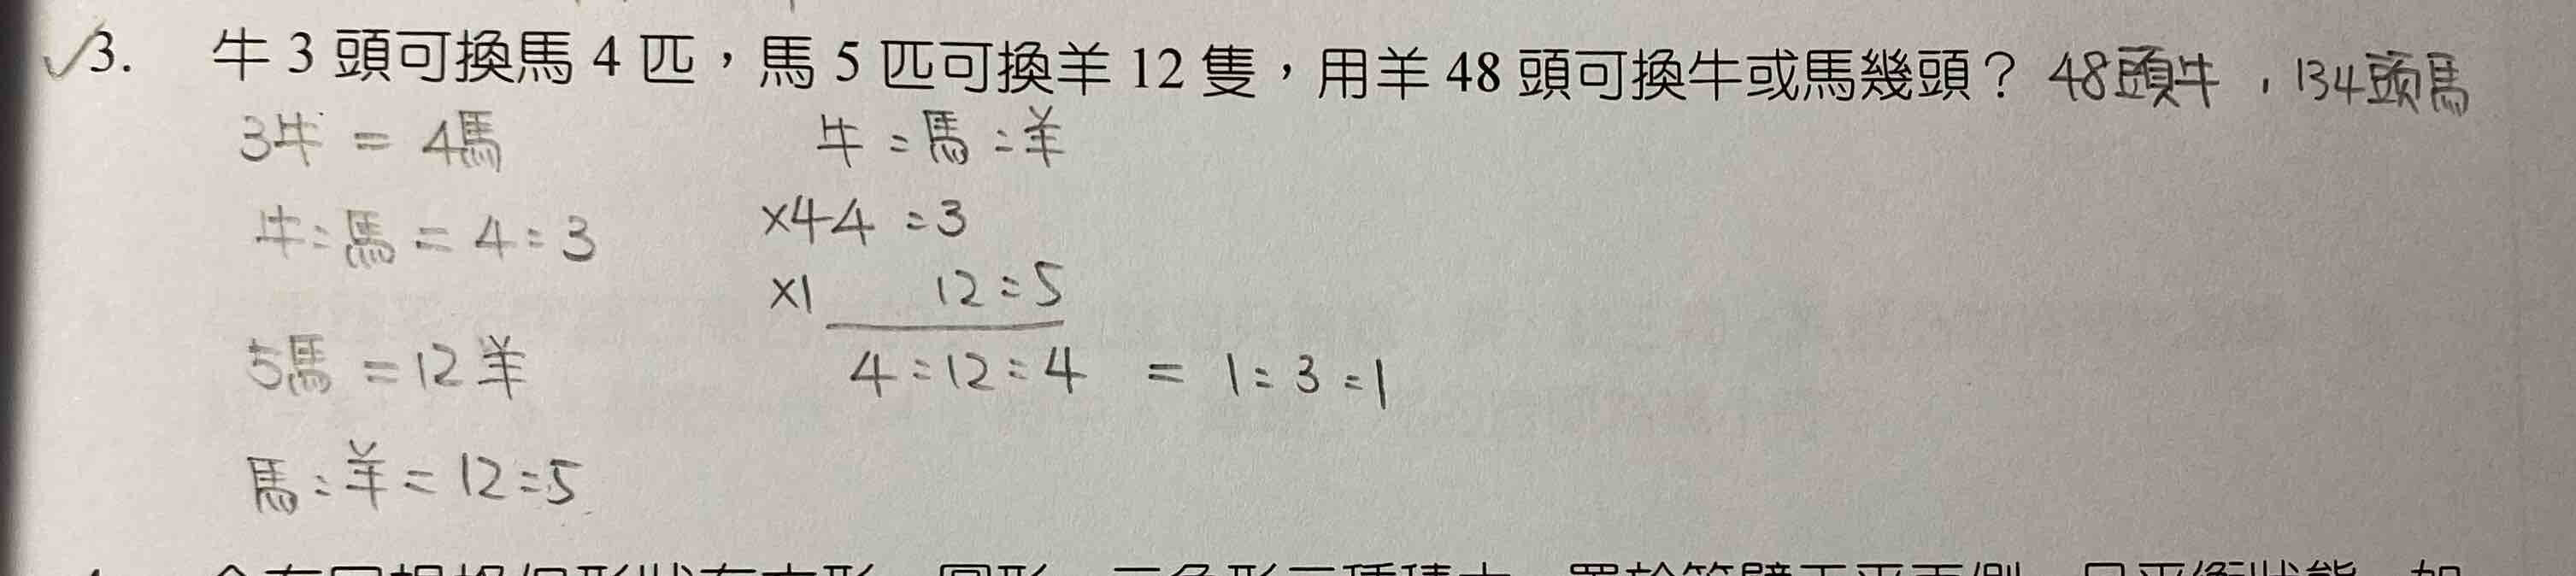 ✓3. 牛 3 頭可換馬 4 匹，馬 5 匹可換羊 12 隻，用羊 48 頭可換牛或馬幾頭？ 48頭牛，134頭馬
3牛 = 4馬
牛:馬 = 4:3
5馬 = 12羊
馬:羊 = 12:5
牛:馬:羊
×4 4 : 3
×1 12 : 5
4 : 12 : 4 = 1 : 3 : 1